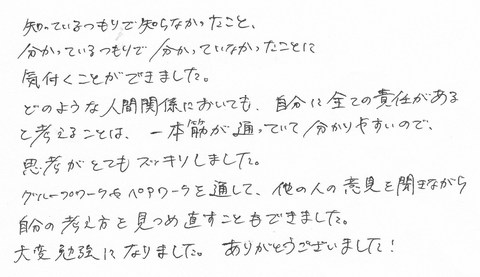 知っているつもりで知らなかったこと、
分かっているつもりで分かっていなかったことに
気付くことができました。
どのような人間関係においても、自分に全ての責任がある
と考えることは、一本筋が通っていて分かりやすいので、
思考がとてもスッキリしました。
グループワークやペアワークを通して、他の人の意見を聞きながら
自分の考え方を見つめ直すこともできました。
大変勉強になりました。ありがとうございました！